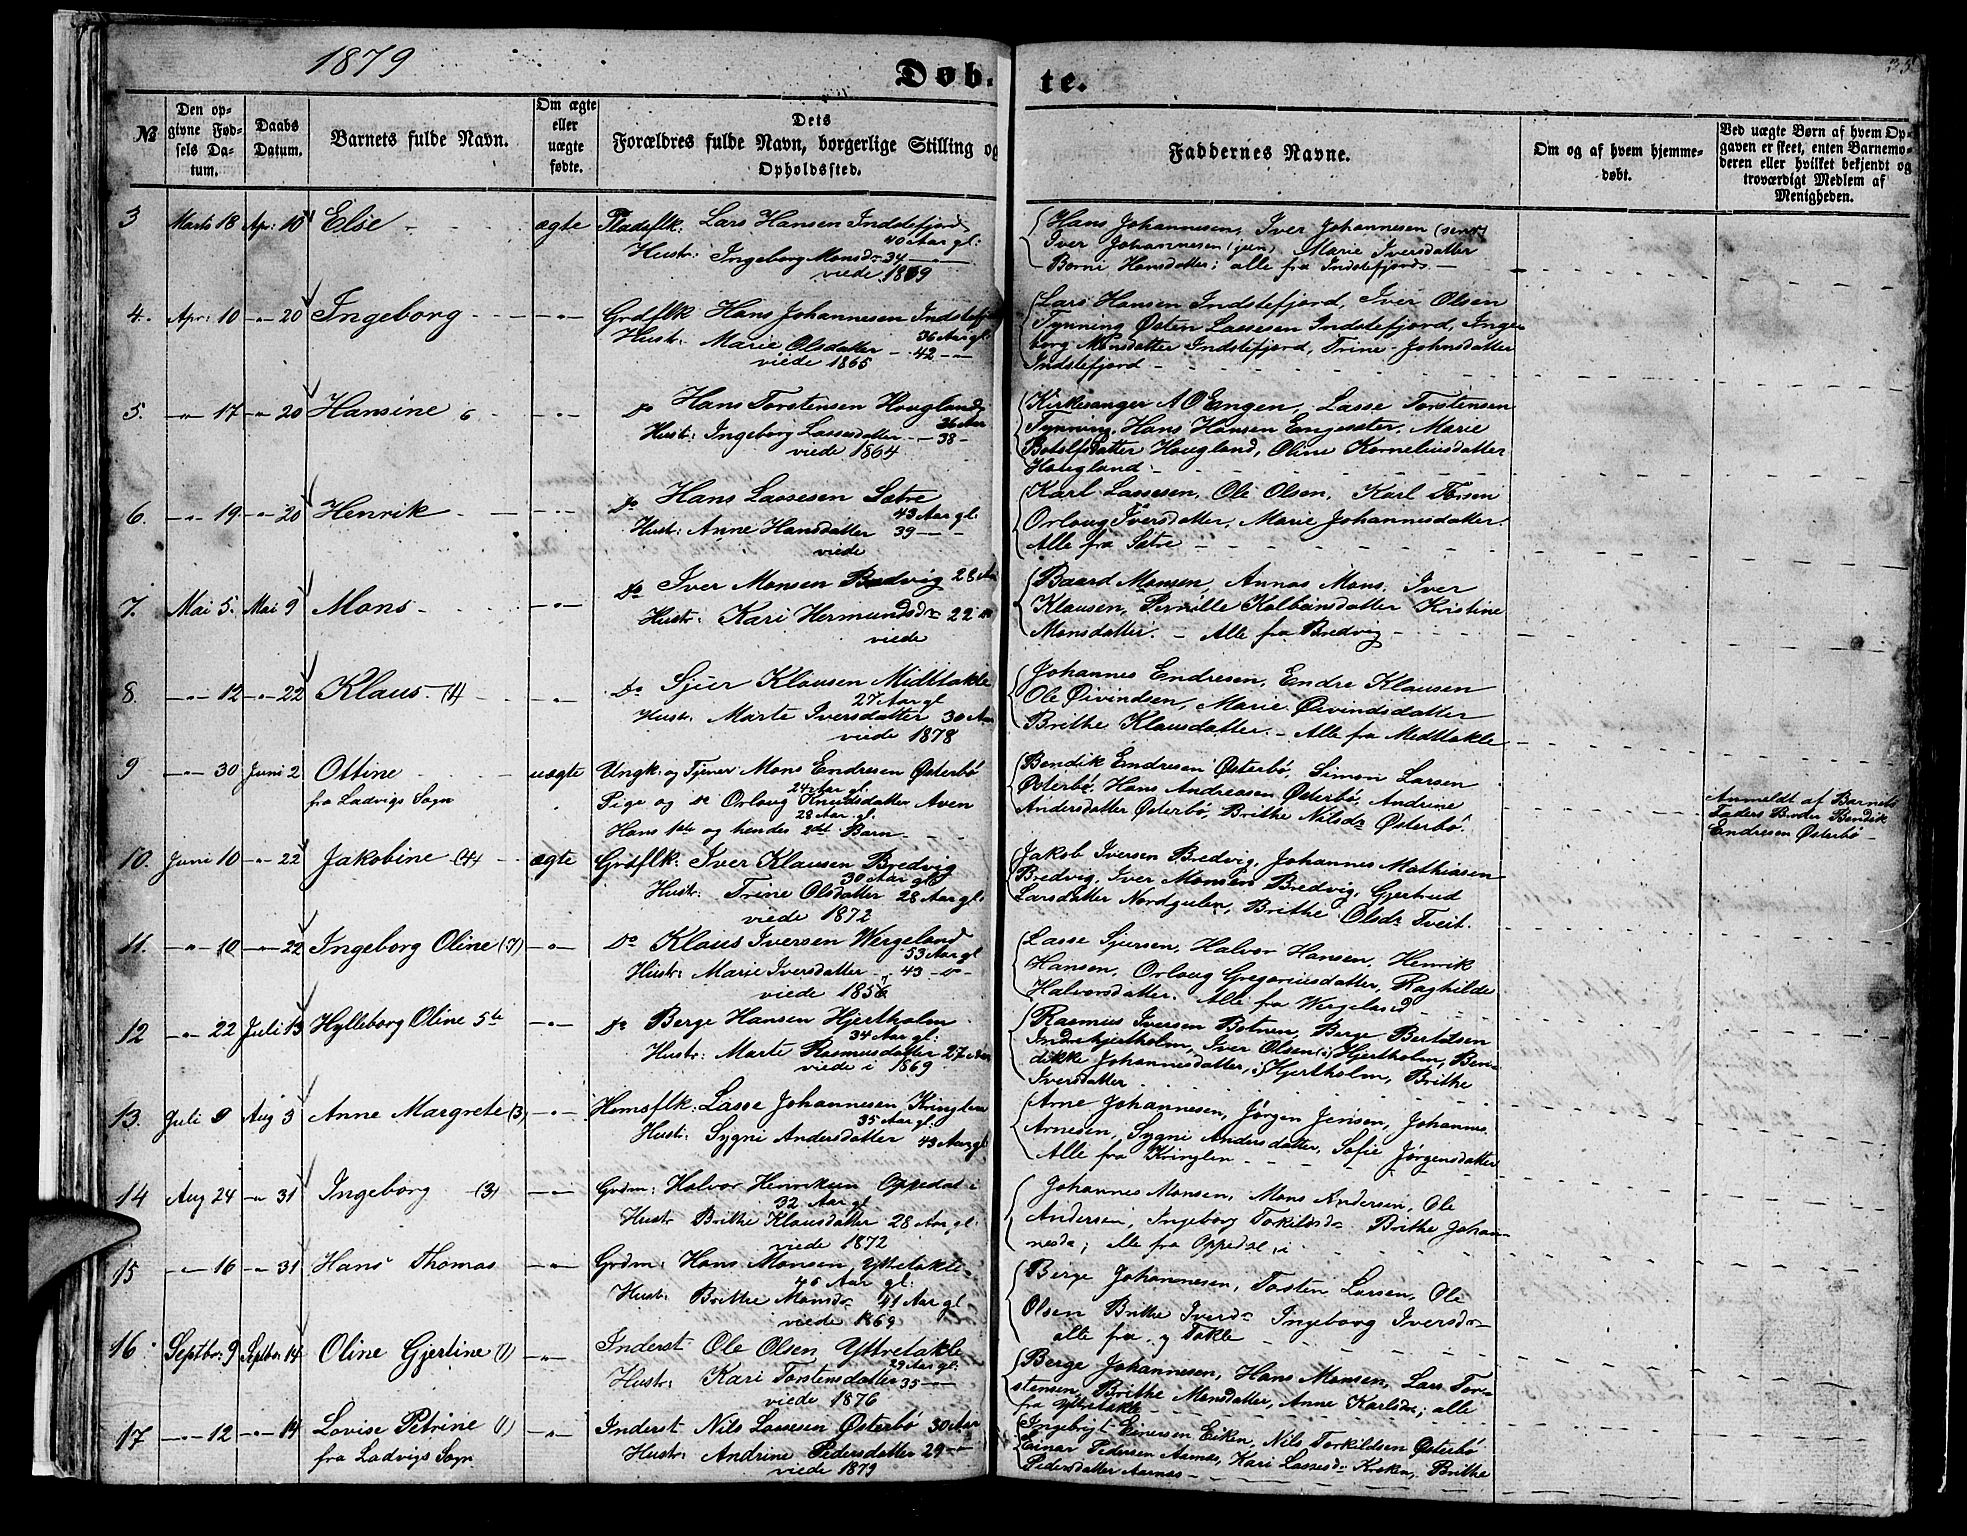 1879
Døb-
te.
35
№
Den op-
givne Fød-
sels Da-
tum.
Daabs
Datum.
Barnets fulde Navn.
Om ægte
eller
uægte
fødte.
Dets
Forældres fulde Navn, borgerlige Stilling og
Opholdssted.
Faddernes Navne.
Om og af hvem hjemme-
døbt.
Ved uægte Børn af hvem Op-
gaven er skeet, enten Barnemo-
deren eller hvilket bekjendt og
troværdigt Medlem af
Menigheden.
3 Marts 18 Apr: 10 Else - ægte Pladsflk. Lars Hansen Indstefjord
40 Aar gl:
Hustr: Ingeborg Monsdr 34 -"-
viede 1869
Hans Johannesen, Iver Johannesen (senr)
Iver Johannesen (jun) Marie Iversdatter
Børni Hansdatter; alle fra Indstefjord -
4. Apr: 10 -"- 20 Ingeborg - -"- Grdflk Hans Johannesen Indstefj
36 Aar gl
Hustr: Marie Olsdatter - 42 -"-
viede 1865
Lars Hansen Indstefjord, Iver Olsen
Tynning Østen Lassesen Indstefjord, Inge-
borg Monsdatter Indstefjord, Trine Johnsdatter
Indstefjord -
5. -"- 17 -"- 20 Hansine 6 -"- Do Hans Torstensen Hougland
36 Aar
Hustr: Ingeborg Lassesdatter - 38 -
viede 1864
Kirkesanger A O Engen, Lasse Torstensen
Tynning, Hans Hansen Engesæter, Marie
Botolfsdatter Hougland, Oline Korneliusdatter
Hougland -
6. -"- 19 -"- 20 Henrik - -"- Do Hans Lassesen Sætre
43 Aar gl.
Hustr: Anne Hansdatter 39 -"-
viede
Karl Lassesen, Ole Olsen, Karl
Orloug Iversdatter, Marie Johannesdatter.
Alle fra Sætre -
7. Mai 5. Mai 9 Mons - -"- Do Iver Monsen Bredvig 28 Aar
Hustr: Kari Hermundsdr 22 "
viede
Baard Monsen, Annas Mons, Iver
Klausen, Pernille Kolbeinsdatter Kristine
Monsdatter. - Alle fra Bredvig -
8. -"- 12 -"- 22 Klaus - (1) -"- Do Sjur Klausen Midttakle
27 Aar gl
Hustr: Marte Iversdatter 30 Aar
viede 1878
Johannes Endresen, Endre Klausen
Ole Øivindsen, Marie Øivindsdatter
Brithe Klausdatter. - Alle fra Midttakle
9 -"- 30 Juni 2 Ottine - uægte Ungk: og Tjener Mons Endresen Østerbø
24 Aar gl.
fra Ladvigs Sogn
Pige og do Orloug Knudsdatter Aven
28 Aar gl.
Hans 1ste og hendes 2det Barn -
Bendik Endresen Østerbø, Simon Larsen
Østerbø, Hans Andreasen Østerbø, Andrine
Andersdatter Østerbø, Brithe Nilsdr Østerbø.
Anmeldt af Barnets
Faders Broder Bendik
Endresen Østerbø -
10. Juni 10 -"- 22 Jakobine (4) - ægte Grdflk: Iver Klausen Bredvig
30 Aar gl
Hustr: Trine Olsdatter 28 Aar gl.
viede 1872
Jakob Iversen Bredvig, Johannes Mathiasen
Bredvig, Iver Monsen Bredvig, Gjertrud
Larsdatter Nordgulen, Brithe Olsdr Tveit.
11. -"- 10 -"- 22 Ingeborg Oline (7) -"- Do Klaus Iversen Wergeland
53 Aar gl
Hustr: Marie Iversdatter - 43 -"-
viede 1856
Lasse Sjursen, Halvor Hansen, Henrik
Hansen, Orloug Gregoriusdatter, Raghilde
Halvorsdatter. Alle fra Wergeland
12 -"- 22 Juli 13 Hylleborg Oline 5te -"- Do Berge Hansen Hjertholm
34 Aar gl:
Hustr: Marte Rasmusdatter 27 Aar
viede i 1869
Rasmus Iversen Botnen, Berge Bertelsen
Indrehjertholm, Iver Olsen (i) Hjertholm, Ben-
dikke Johannesdatter, i Hjertholm, Brithe
Iversdatter
13. Juli 9 Aug 3 Anne Margrete (3) -"- Hmsflk: Lasse Johannesen Kringlen
35 Aar gl.
Hustr: Sygni Andersdatter 43 Aar gl
Arne Johannesen, Jørgen Jensen, Johannes
Arnesen, Sygni Andersdatter, Sofie Jørgensdatter
Alle fra Kringlen -
14 Aug 24 -"- 31 Ingeborg (3) -"- Grdm: Halvor Henriksen Oppedal i
32 Aar gl
Hustr Brithe Klausdatter 28 Aar gl.
viede 1872
Johannes Monsen, Mons Andersen, Ole
Andersen, Ingeborg Torkildsdr Brithe Johan-
nesdr; alle fra Oppedal i
15 -"- 16 -"- 31 Hans Thomas -"- Grdm: Hans Monsen Yttretakle
Hustr: Brithe Monsdr 41 Aar gl
viede 1869
Berge Johannesen, Torsten Larsen, Ole
Olsen Brithe Iversdr Ingeborg Iversdr
alle fra y Takle
16 Septbr: 9 Septbr: 14 Oline Gjertine (1) -"- Inderst Ole Olsen Yttretakle
29 Aar gl.
Hustr: Kari Torstensdatter 35 -"-
viede 1876
Berge Johannesen, Hans Monsen, Lars Tor-
stensen, Brithe Monsdatter, Anne Karlsdr; alle
fra Yttretakle
17 -"- 12 -"- 14 Lovise Petrine (1) -"- Inderst Nils Lassesen Østerbø 30 Aar
fra Ladvigs Sogn
Hustr: Andrine Pedersdatter 29 -"-
viede 1879
Ingebrigt Einersen Eiken, Nils Torkildsen Østerbø
Einar Pedersen Aarnes, Kari Lassesdr Kroken, Brithe
Pedersdatter Aarnes -